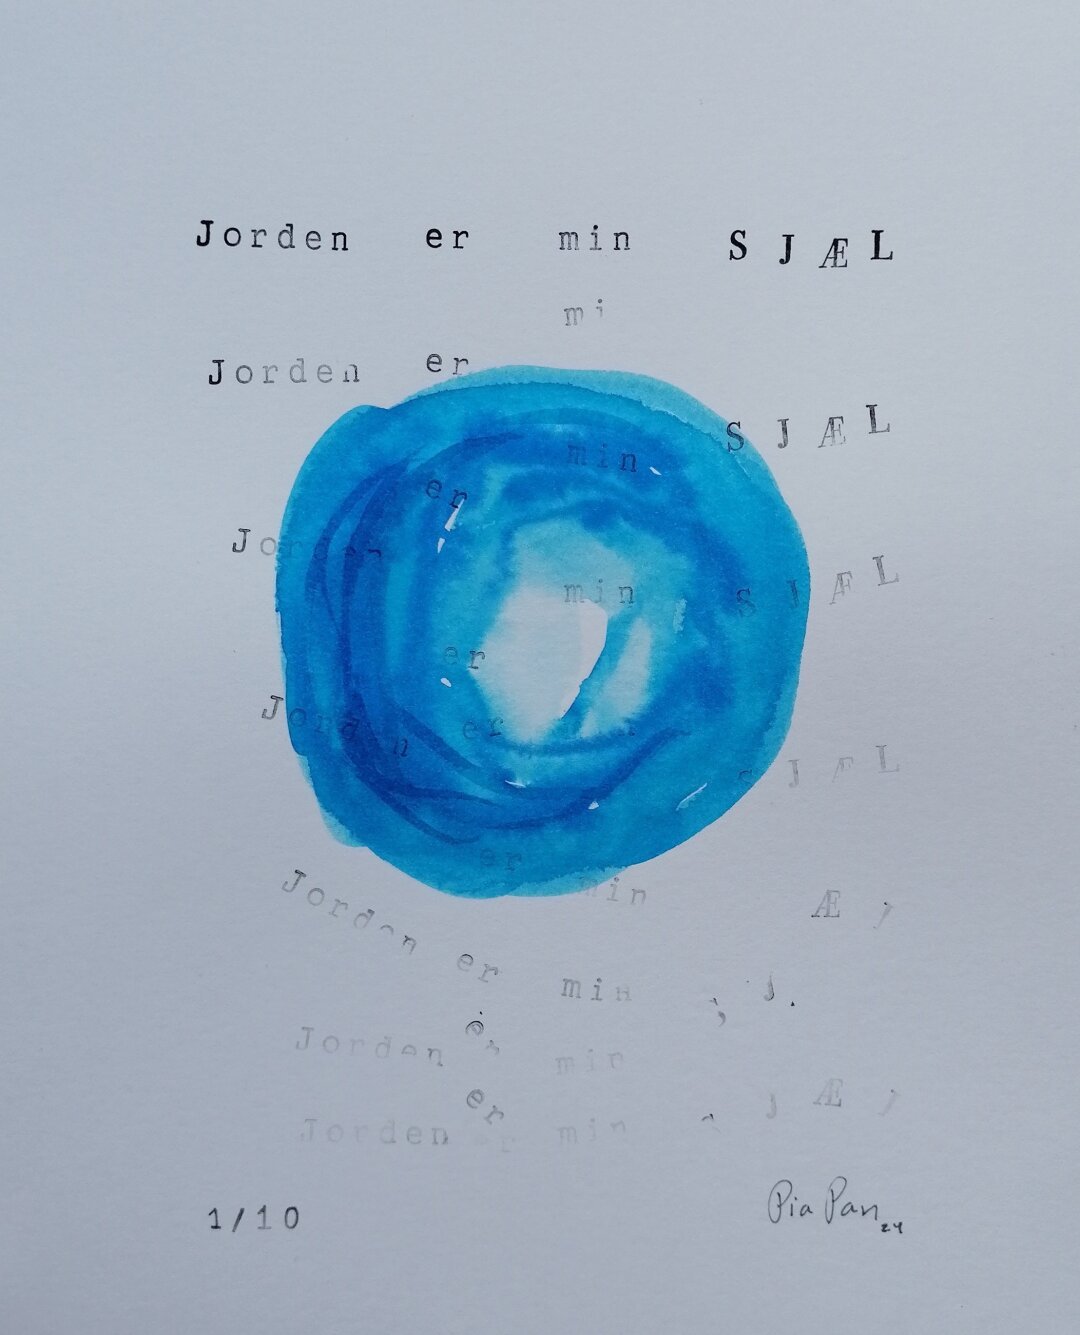 Jorden er min SJÆL
mi
Jorden er
SJÆL
min
er
Jorden
min
SJÆL
er
Jorden er
SJÆL
er
min
Jorden
Æ
er min
Jorden min
er
JÆ
Jorden min
1/10
Pia Pan 24